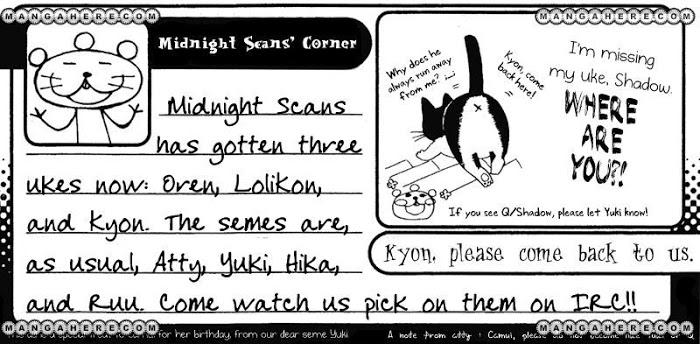 MANGAHERE.COM
MANGAHERE.COM
Midnight Scans' Corner
Midnight Scans
has gotten three
ukes now: Oren, Lolikon,
and Kyon. The semes are,
as usual, Atty, Yuki, Hika,
and Ruu. Come watch us pick on them on IRC!!
Why does he
always run away
from me? ;_;
Kyon, come
back here!
I'm missing
my uke, Shadow.
WHERE
ARE
YOU?!
If you see Q/Shadow, please let Yuki know!
Kyon, please come back to us.
MANGAHERE.COM
for her birthday, from our dear seme Yuki
A note from atty : Camui,
MANGAHERE.COM